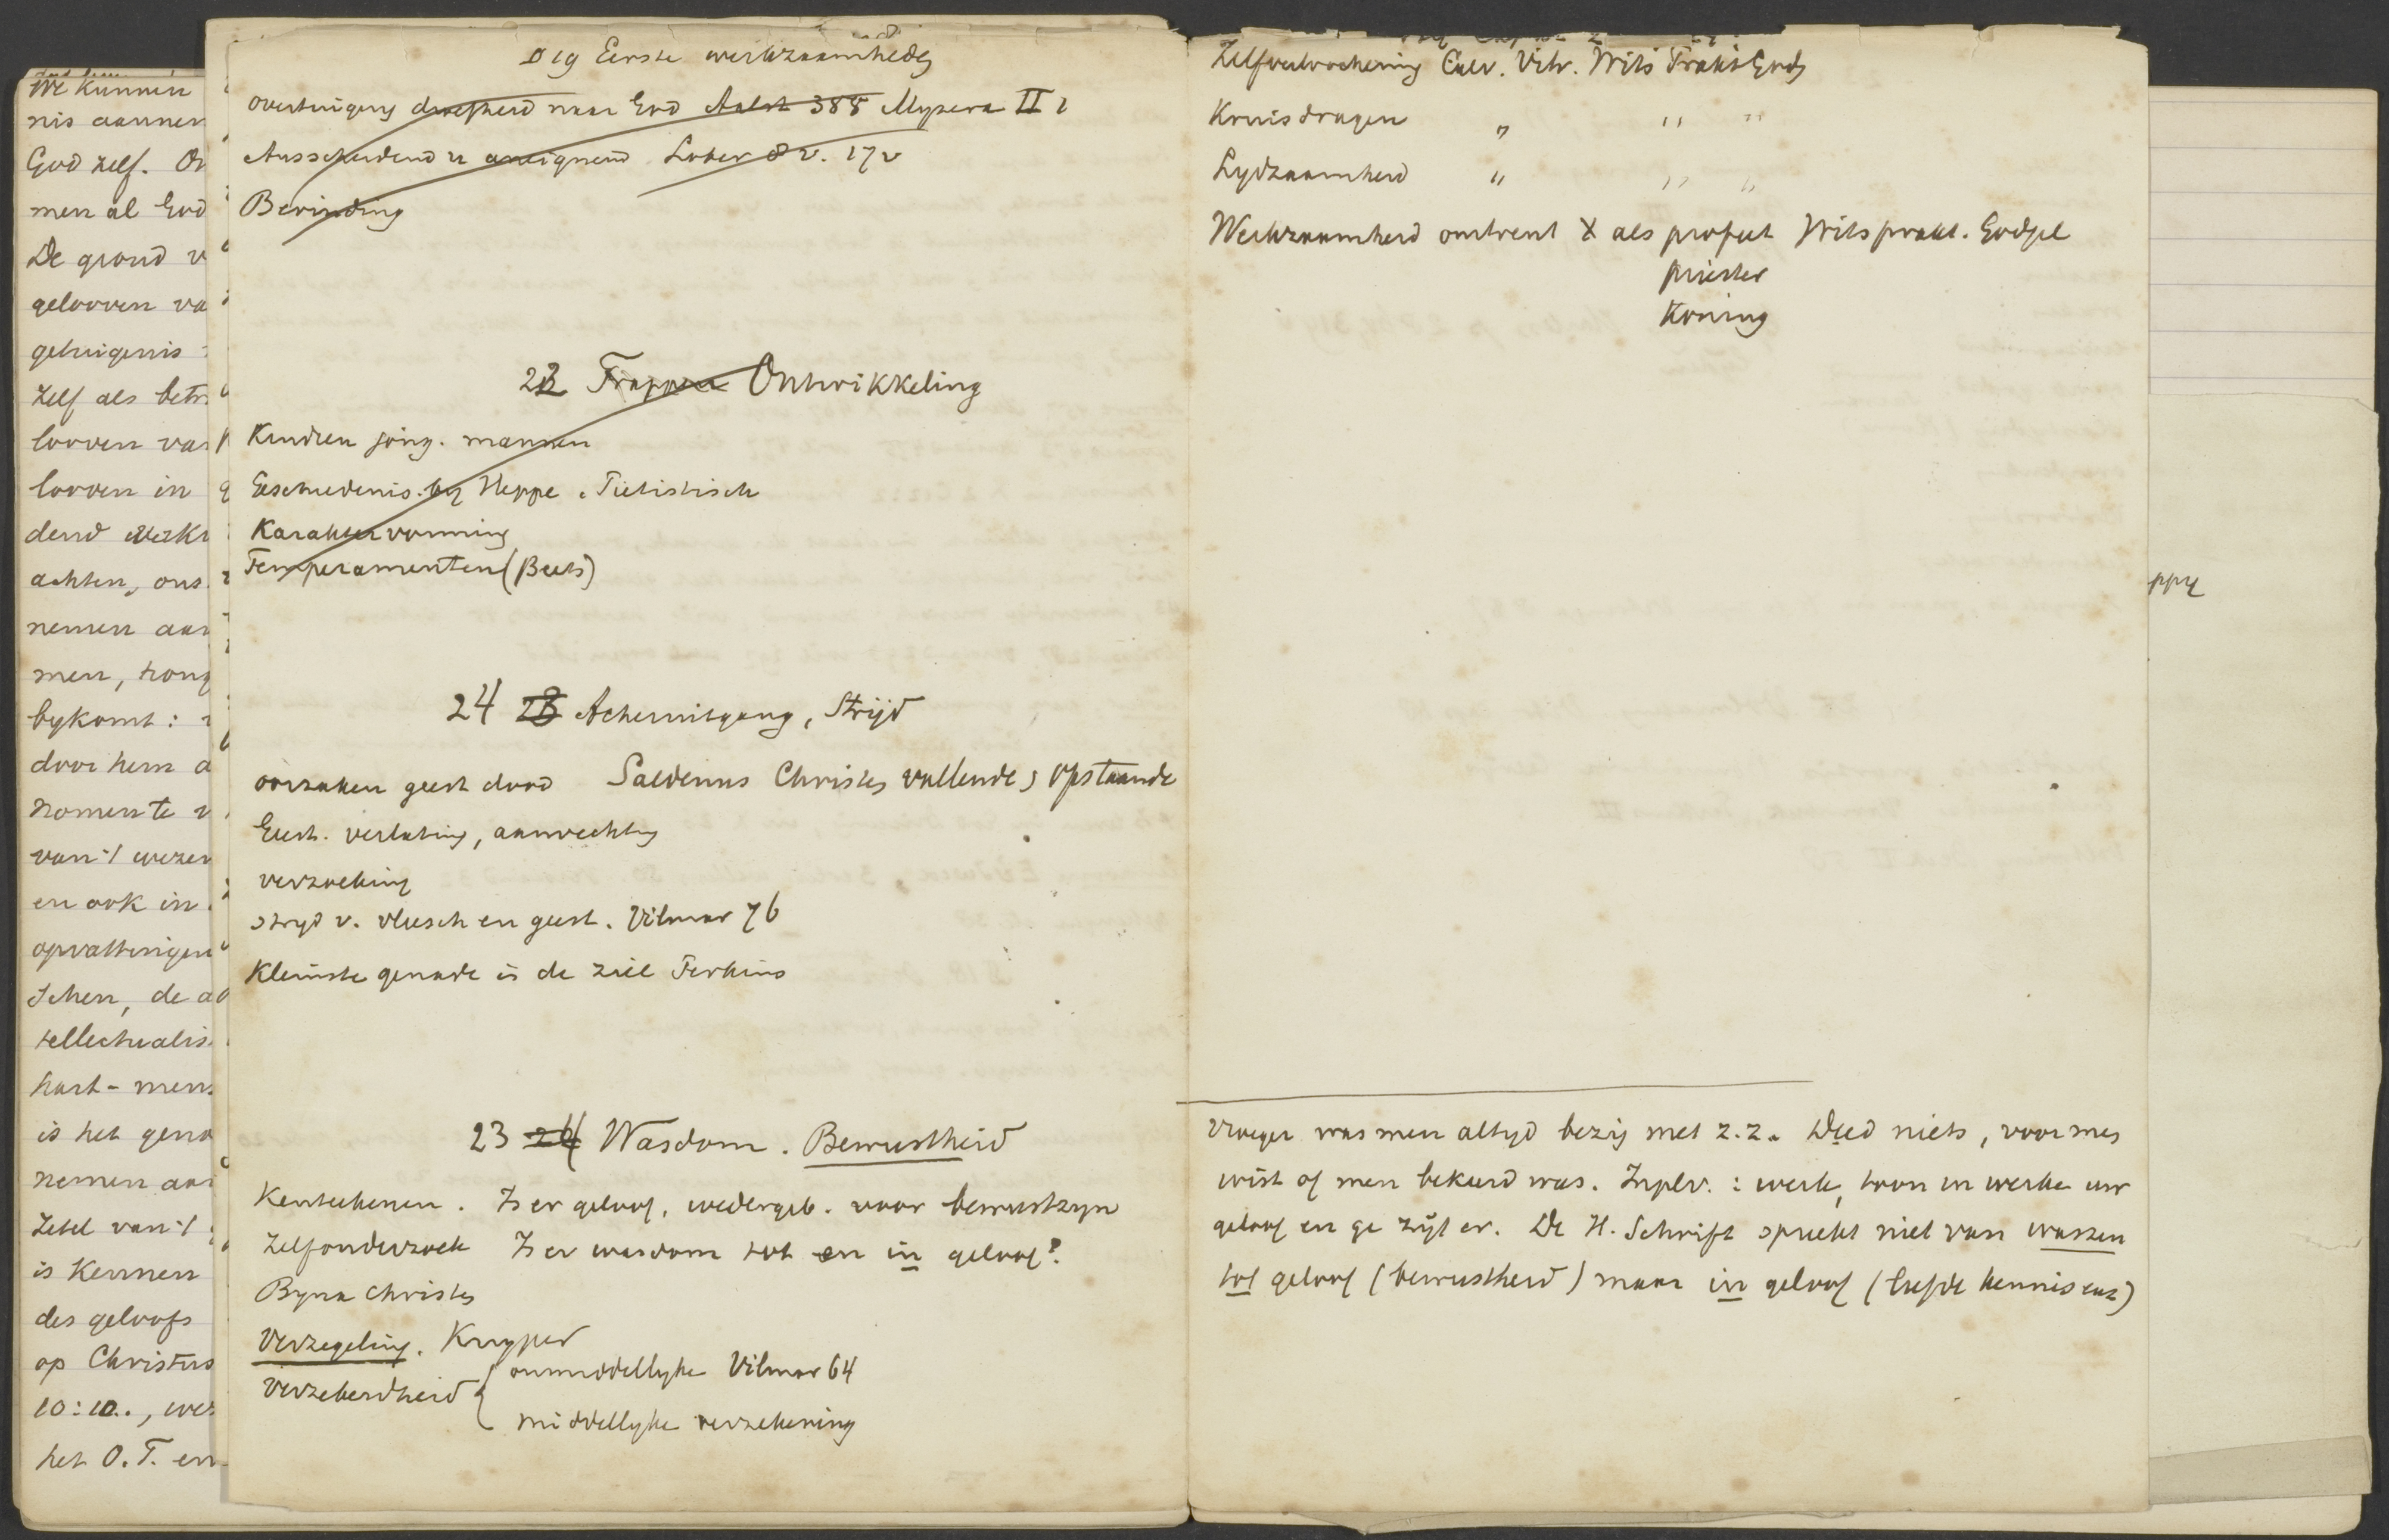 We kunnen
nis aannem
God zelf. On
men al God
De grond v
gelooven va
getuigenis
zelf als betr
looven van
looven in
dend
achten, ons
nemen aan
men, tong
bykomt:
door hem a
nomen te v
van 't wezen
en ook in
opvattingen
schen, de a
tellectualis
hart - mens
is het geno
nemen aan
Zetel van 't
is Kennen
des geloofs
op Christus
10:10., wer
het O.T. en
19 Eerste werkzaamheden
overtuiging droefheid naar God Aalst 388 Mypera II 2
Ausscheidend u aneignend Lober 8 v. 17 v
Bevinding
22 Trappen Ontwikkeling
Kindren jong. mannen
Geschiedenis. by Heppe. Pietistisch
Karaktervorming
Temperamenten (Beets)
24 23 Achteruitgang, Strijd
oorzaken geest dood Saldenus Christen vallende, opstaande
Geest. verlating, aanvechting
verzoeking
stryd v. vleesch en geest. Vilmar 76
Kleinste genade in de ziel Perkins
23 24 Wasdom. Bewustheid
Kenteekenen. Is er geloof, wedergeb. voor bewustzyn
Zelfonderzoek Is er wasdom tot en in geloof?
Byna Christen
Verzegeling. Kuyper
Verzekerdheid { onmiddellyke Vilmar 64
middellyke verzekering
Zelfverloochening Calv. Vitr. Wits Prakt Godg
Kruisdragen " " "
Lydzaamheid " " "
Werkzaamheid omtrent X als profeet Wits prakt. Godgel
priester
Koning
Vroeger was men altyd bezig met z.z. Deed niets, voor men
wist of men bekeerd was. Inplv.: werk, toon in werke uw
geloof en ge zijt er. De H. Schrift spreekt niet van wassen
tot geloof (bewustheid) maar in geloof (liefde kennis enz)
ppy